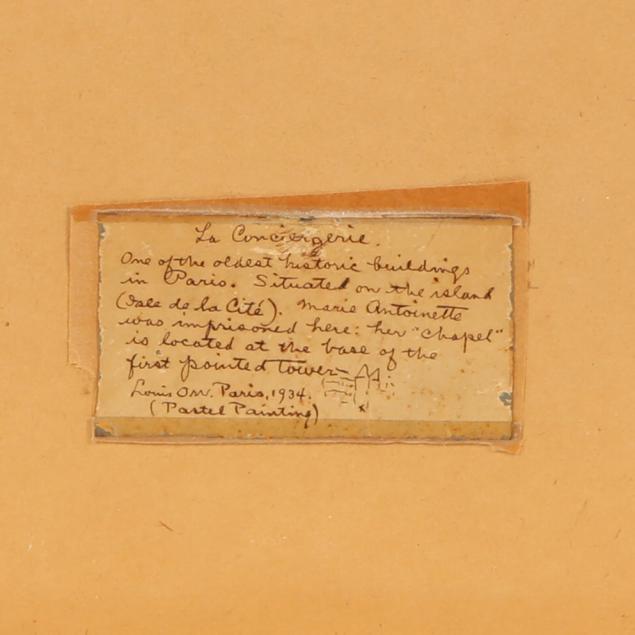 La Conciergerie.
One of the oldest historic buildings
in Paris. Situated on the island
(Isle de la Cité). Marie Antoinette
was imprisoned here: her "chapel"
is located at the base of the
first pointed tower—
Louis Orr. Paris, 1934.
(Pastel Painting)